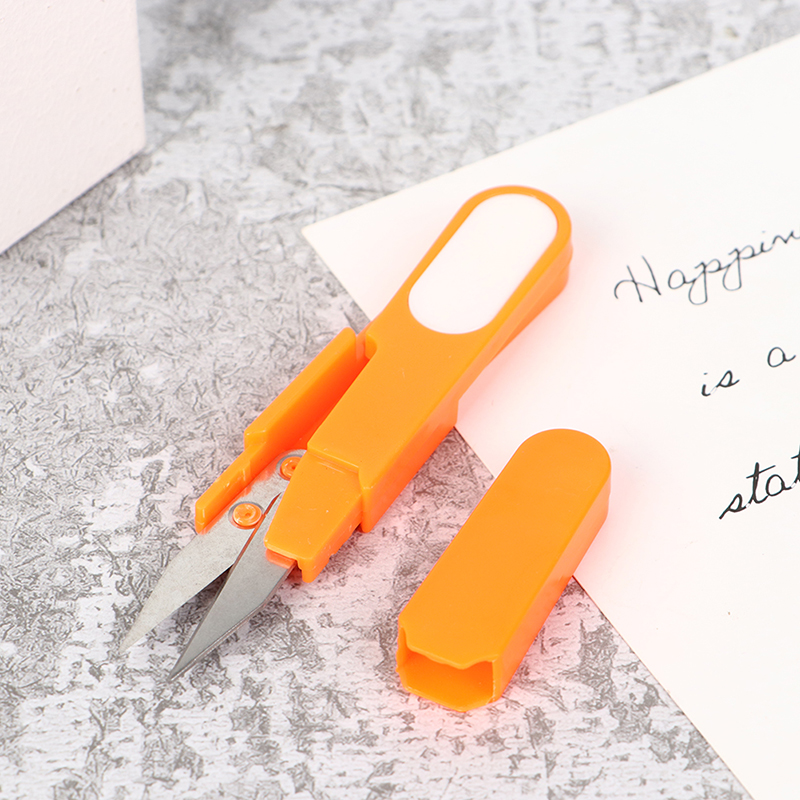 Happin
is a
stat